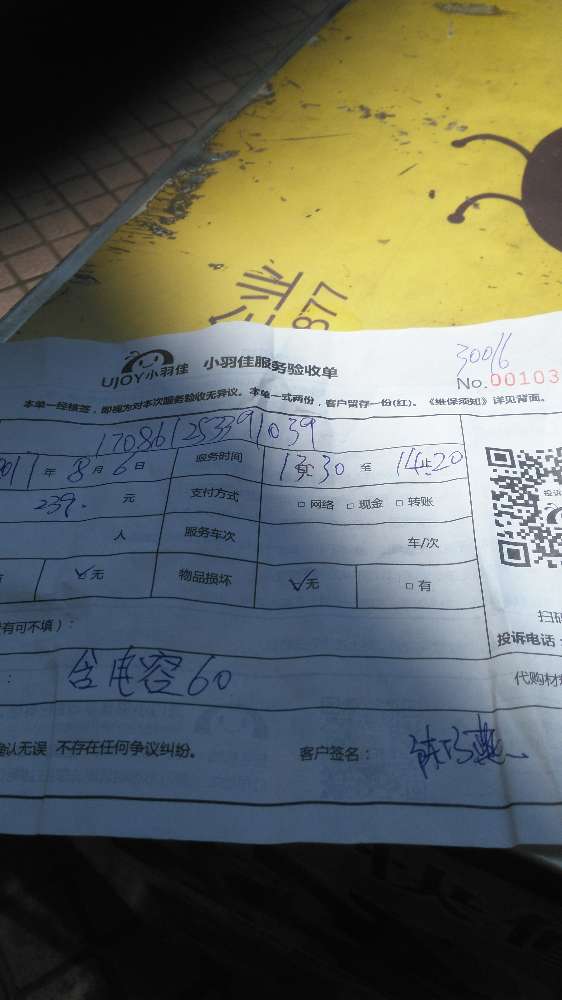 877
UJOY小羽佳 小羽佳服务验收单
30016
No.00103
本单一经接签，即视为对本次服务验收无异议。本单一式两份，客户留存一份(红)。《维保须知》详见背面。
170861253391039
年 8 月 6 日 服务时间 13:30 至 14:20
239. 元 支付方式 □ 网络 □ 现金 □ 转账
人 服务车次 车/次
✓无 物品损坏 ✓无 □ 有
有可不填）：
投诉电话：
含电容60 代购材
确认无误 不存在任何争议纠纷。 客户签名：